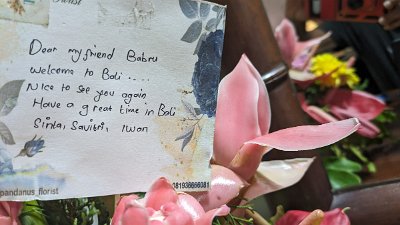 Florist
Dear my friend Babru
Welcome to Bali ....
Nice to see you again
Have a great time in Bali
Sinta, Savitri, Iwan
pandanus_florist
081936666081